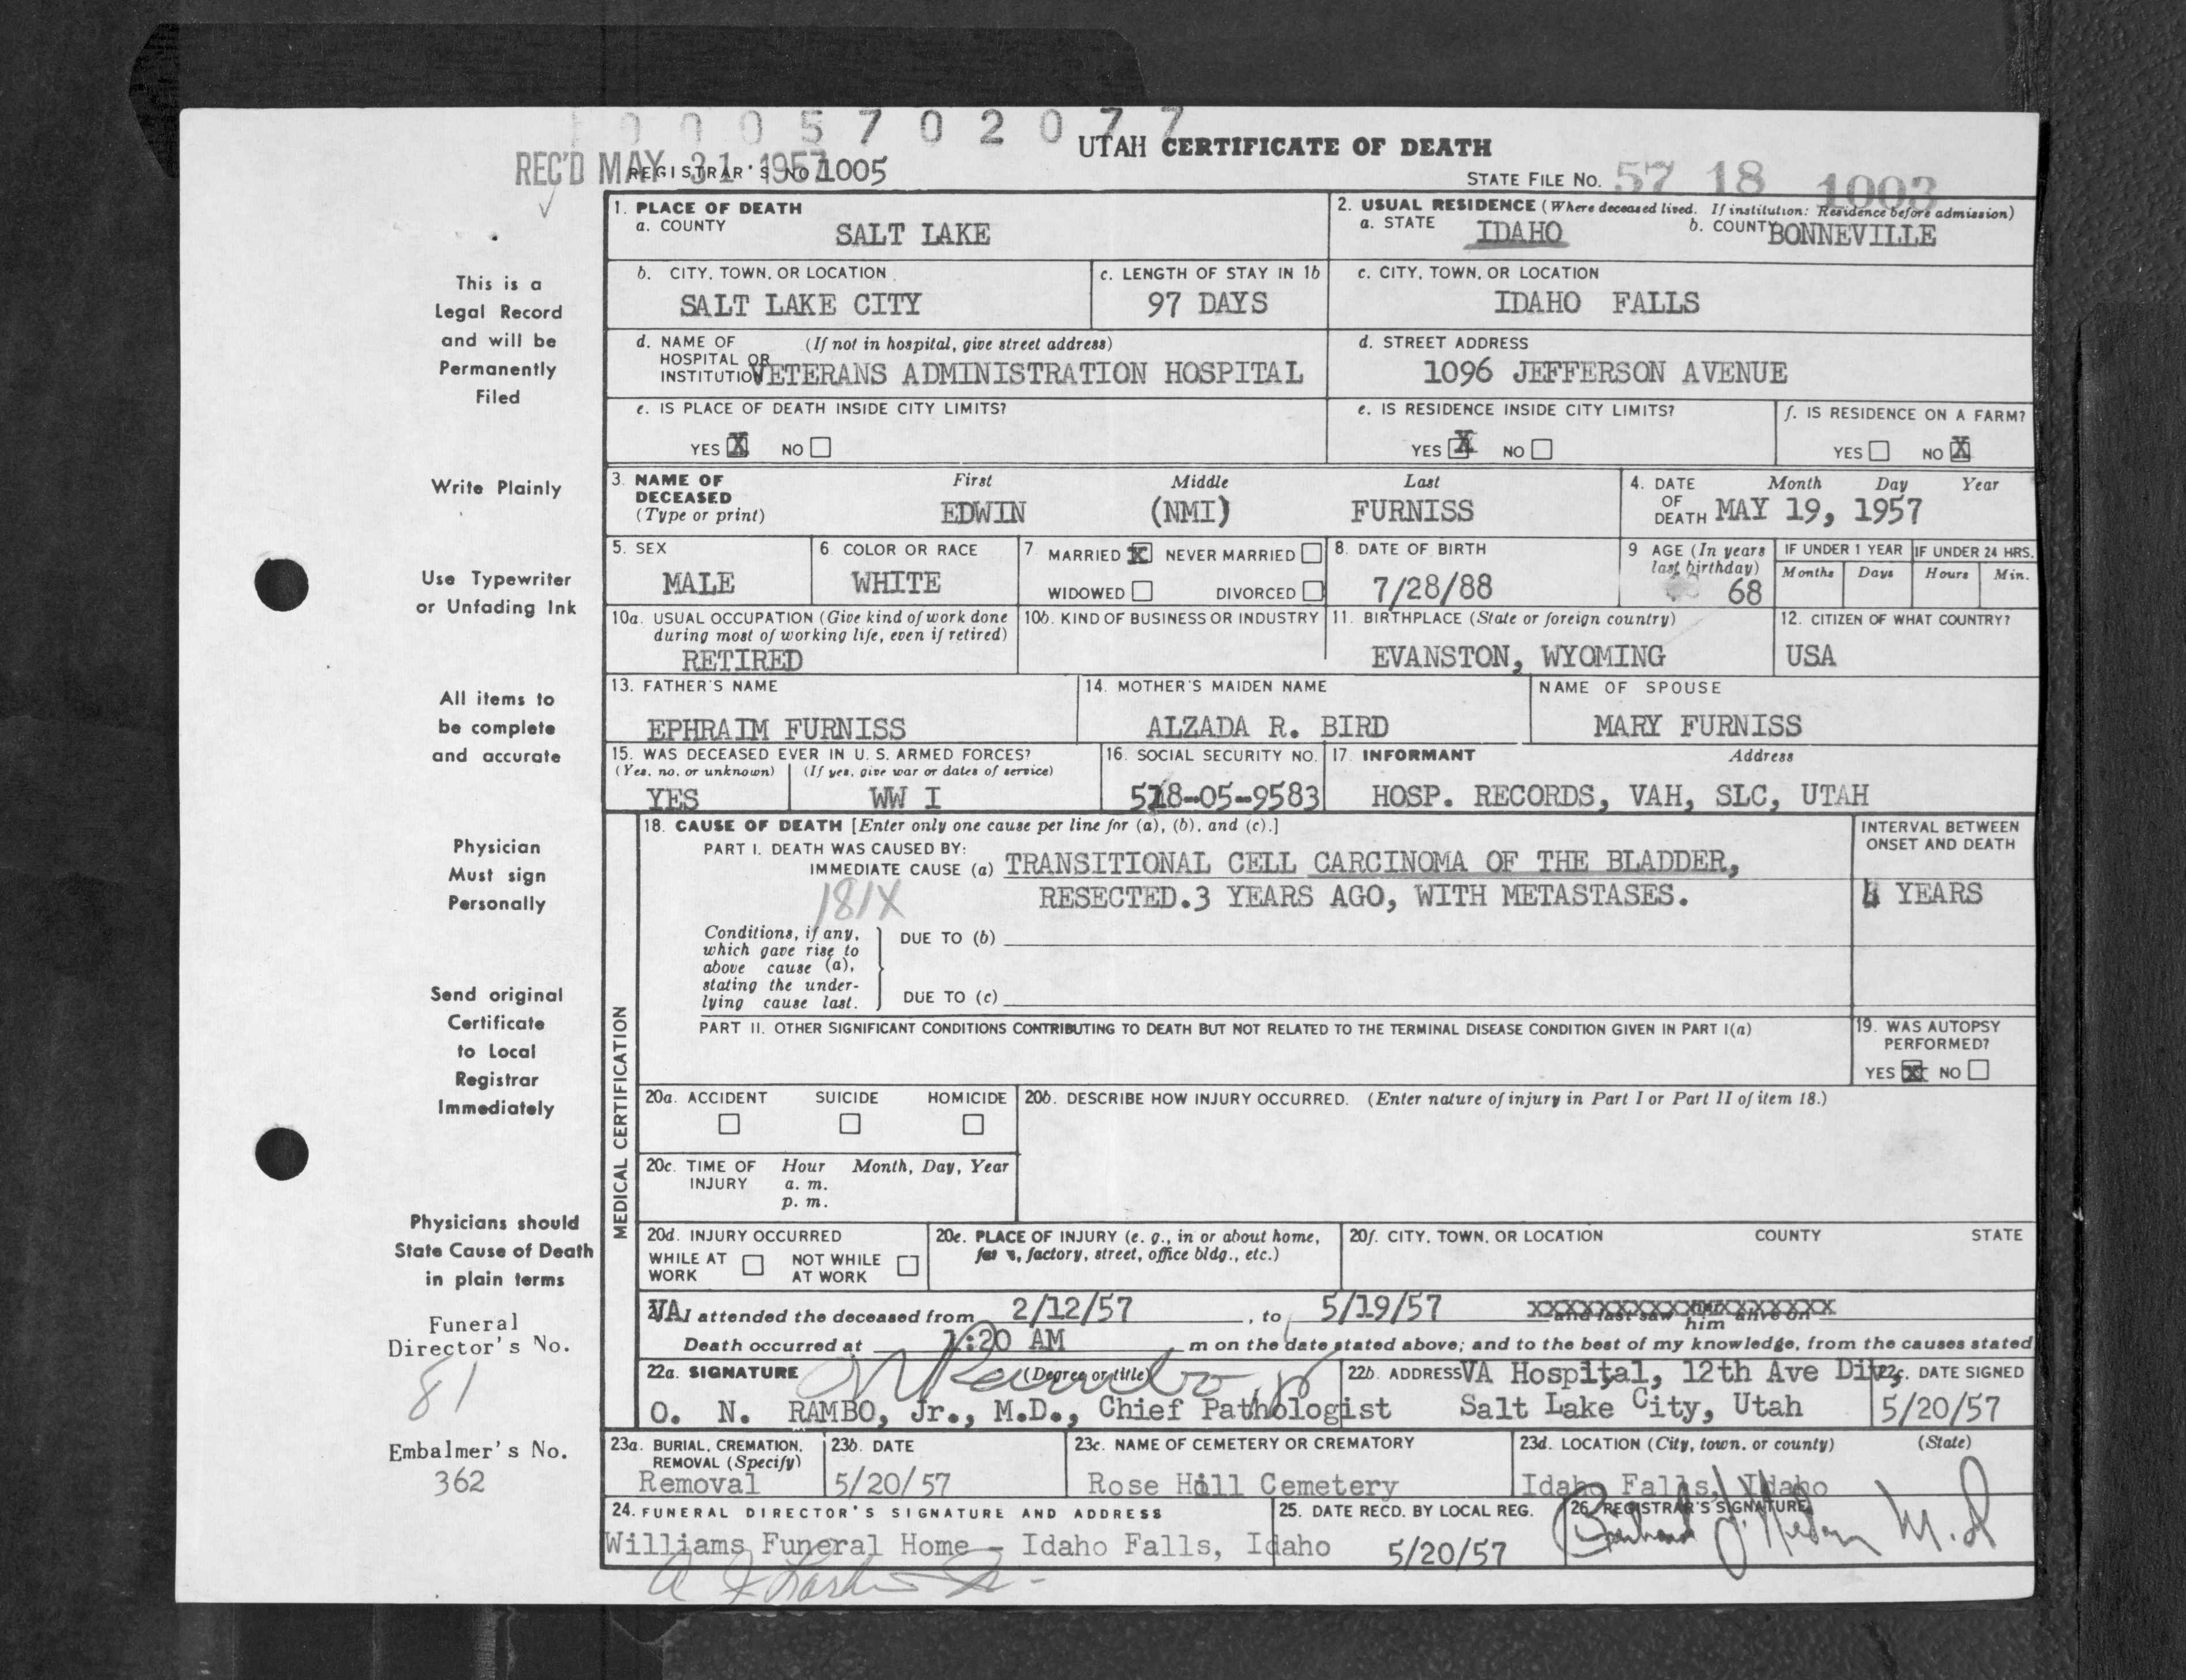 0005702077
UTAH CERTIFICATE OF DEATH
REC'D MAY 31 1957
REGISTRAR'S NO 1005
STATE FILE NO. 57 18 1003
This is a
Legal Record
and will be
Permanently
Filed
Write Plainly
Use Typewriter
or Unfading Ink
All items to
be complete
and accurate
Physician
Must sign
Personally
Send original
Certificate
to Local
Registrar
Immediately
Physicians should
State Cause of Death
in plain terms
Funeral
Director's No.
81
Embalmer's No.
362
1. PLACE OF DEATH
a. COUNTY SALT LAKE
2. USUAL RESIDENCE (Where deceased lived. If institution: Residence before admission)
a. STATE IDAHO b. COUNTY BONNEVILLE
b. CITY, TOWN, OR LOCATION
SALT LAKE CITY
c. LENGTH OF STAY IN 1b
97 DAYS
c. CITY, TOWN, OR LOCATION
IDAHO FALLS
d. NAME OF HOSPITAL OR INSTITUTION (If not in hospital, give street address)
VETERANS ADMINISTRATION HOSPITAL
d. STREET ADDRESS
1096 JEFFERSON AVENUE
e. IS PLACE OF DEATH INSIDE CITY LIMITS?
YES X NO
e. IS RESIDENCE INSIDE CITY LIMITS?
YES X NO
f. IS RESIDENCE ON A FARM?
YES NO X
3. NAME OF DECEASED (Type or print)
First Middle Last
EDWIN (NMI) FURNISS
4. DATE OF DEATH Month Day Year
MAY 19, 1957
5. SEX
MALE
6. COLOR OR RACE
WHITE
7. MARRIED X NEVER MARRIED
WIDOWED DIVORCED
8. DATE OF BIRTH
7/28/88
9 AGE (In years last birthday)
68
IF UNDER 1 YEAR
Months Days
IF UNDER 24 HRS.
Hours Min.
10a. USUAL OCCUPATION (Give kind of work done during most of working life, even if retired)
RETIRED
10b. KIND OF BUSINESS OR INDUSTRY
11. BIRTHPLACE (State or foreign country)
EVANSTON, WYOMING
12. CITIZEN OF WHAT COUNTRY?
USA
13. FATHER'S NAME
EPHRAIM FURNISS
14. MOTHER'S MAIDEN NAME
ALZADA R. BIRD
NAME OF SPOUSE
MARY FURNISS
15. WAS DECEASED EVER IN U. S. ARMED FORCES?
(Yes, no, or unknown) (If yes, give war or dates of service)
YES WW I
16. SOCIAL SECURITY NO.
518-05-9583
17. INFORMANT Address
HOSP. RECORDS, VAH, SLC, UTAH
MEDICAL CERTIFICATION
18. CAUSE OF DEATH [Enter only one cause per line for (a), (b), and (c).]
PART I. DEATH WAS CAUSED BY:
IMMEDIATE CAUSE (a) TRANSITIONAL CELL CARCINOMA OF THE BLADDER,
181X RESECTED.3 YEARS AGO, WITH METASTASES.
INTERVAL BETWEEN ONSET AND DEATH
4 YEARS
Conditions, if any,
which gave rise to
above cause (a),
stating the under-
lying cause last.
DUE TO (b)
DUE TO (c)
PART II. OTHER SIGNIFICANT CONDITIONS CONTRIBUTING TO DEATH BUT NOT RELATED TO THE TERMINAL DISEASE CONDITION GIVEN IN PART I(a)
19. WAS AUTOPSY PERFORMED?
YES X NO
20a. ACCIDENT SUICIDE HOMICIDE
20b. DESCRIBE HOW INJURY OCCURRED. (Enter nature of injury in Part I or Part II of item 18.)
20c. TIME OF INJURY Hour Month, Day, Year
a. m.
p. m.
20d. INJURY OCCURRED
WHILE AT WORK NOT WHILE AT WORK
20e. PLACE OF INJURY (e. g., in or about home, farm, factory, street, office bldg., etc.)
20f. CITY, TOWN, OR LOCATION COUNTY STATE
VA I attended the deceased from 2/12/57, to 5/19/57 and last saw her him alive on
Death occurred at 1:20 AM m on the date stated above; and to the best of my knowledge, from the causes stated
22a. SIGNATURE (Degree or title)
O N Rambo, Jr
O. N. RAMBO, Jr., M.D., Chief Pathologist
22b. ADDRESS VA Hospital, 12th Ave Div,
Salt Lake City, Utah
22c. DATE SIGNED
5/20/57
23a. BURIAL, CREMATION, REMOVAL (Specify)
Removal
23b. DATE
5/20/57
23c. NAME OF CEMETERY OR CREMATORY
Rose Hill Cemetery
23d. LOCATION (City, town, or county) (State)
Idaho Falls, Idaho
24. FUNERAL DIRECTOR'S SIGNATURE AND ADDRESS
Williams Funeral Home - Idaho Falls, Idaho
25. DATE RECD. BY LOCAL REG.
5/20/57
26. REGISTRAR'S SIGNATURE
M.D